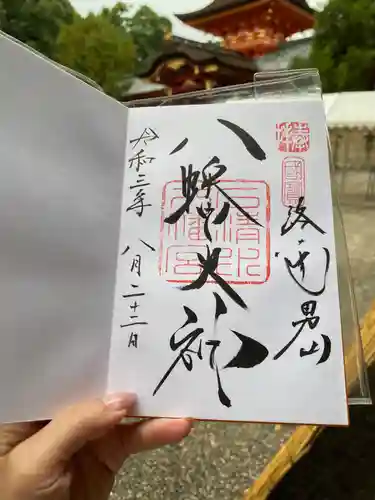 奉拝
国寶
男山
八幡大神
石清水
八幡宮
令和三年
八月二十二日